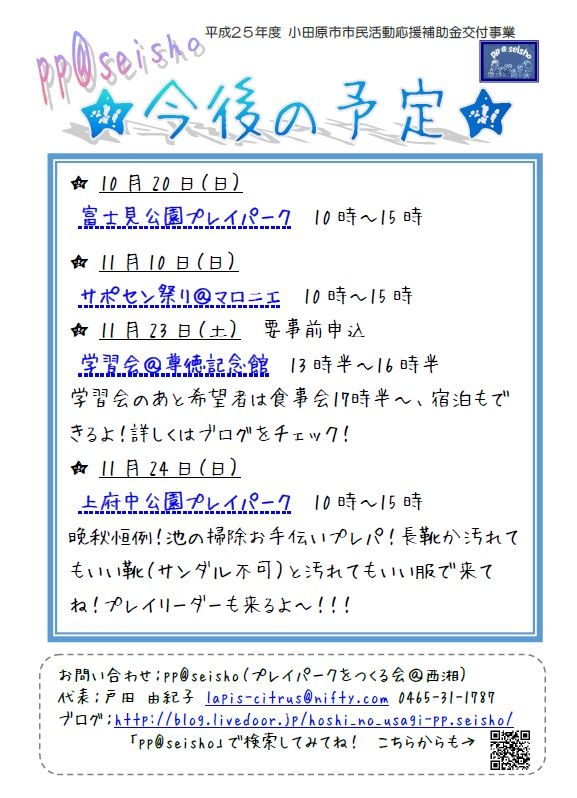 平成25年度 小田原市市民活動応援補助金交付事業
pp@seisho
pp@seisho
今後の予定
10月20日(日)
富士見公園プレイパーク 10時~15時
11月10日(日)
サポセン祭り@マロニエ 10時~15時
11月23日(土) 要事前申込
学習会@尊徳記念館 13時半~16時半
学習会のあと希望者は食事会17時半~、宿泊もで
きるよ!詳しくはブログをチェック!
11月24日(日)
上府中公園プレイパーク 10時~15時
晩秋恒例!池の掃除お手伝いプレパ!長靴か汚れて
もいい靴(サンダル不可)と汚れてもいい服で来て
ね!プレイリーダーも来るよ~!!!
お問い合わせ:pp@seisho(プレイパークをつくる会@西湘)
代表:戸田 由紀子 lapis-citrus@nifty.com 0465-31-1787
ブログ:http://blog.livedoor.jp/hoshi_no_usagi-pp.seisho/
「pp@seisho」で検索してみてね! こちらからも→